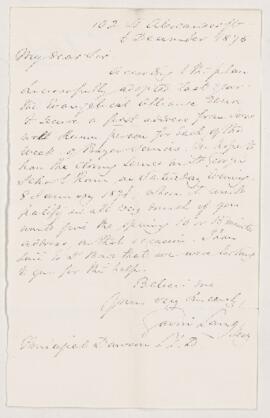 102 St Alexander St
6 December 1876
My dear Sir
According to the plan
successfully adopted last year
the Evangelical Alliance
to secure a first address from some
well known person for each of the
Week of Prayer Services. We hope to
have the closing service in St George
School Room on Saturday evening
8 January 1876, when it would
gratify us all very much if you
would give the opening 10 or 15 minutes
address on that occasion. I have
said to St that we were looking
to you for this help.
Believe me
Yours very sincerely
Gavin Lang
Principal Dawson LL.D